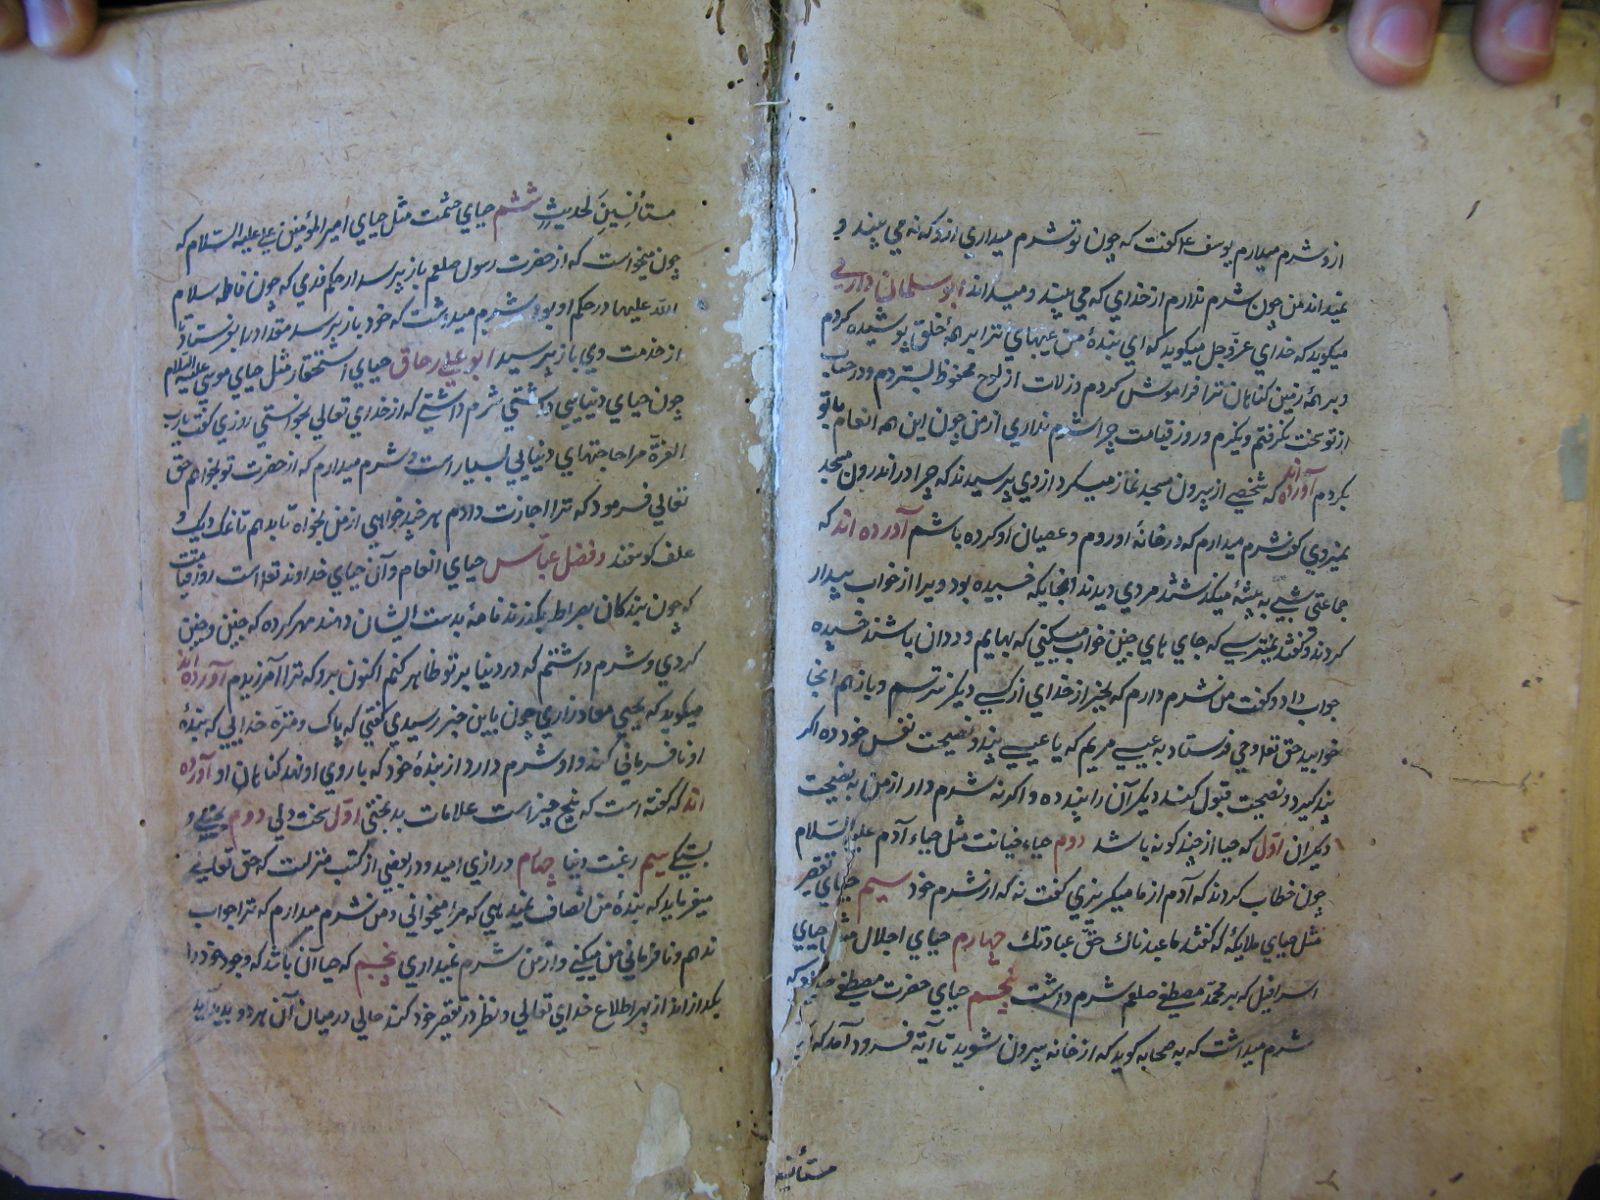 ازو شرم میدارم یوسف ع م گفت که چون تو شرم میداری ازو که نه می بیند و
نمیداند من چون شرم ندارم از خدای که می بیند و میداند ابو سلمان دارانی
میکوید که خدای عز و جل میکوید که ای بندهٔ من عیبهای ترا بر همهٔ خلق پوشیده کردم
و بر همهٔ زمین کناهان ترا فراموش کردم و زلات از لوح محفوظ بستردم و در حساب
از تو سخت نکرفتم و نکیرم و روز قیامت چرا شرم نداری از من چون این همه انعام با تو
بکردم آورده اند که شخصی از بیرون مسجد نماز میکرد از وی پرسیدند که چرا در اندرون مسجد
نمیروی کفت شرم میدارم که در خانهٔ او روم و عصیان او کرده باشم آورده اند که
جماعتی شبی به بیشهٔ میکذشتند مردی دیدند انجایکه خسپیده بود ویرا از خواب بیدار
کردند و کفتند نمیترسی که جای های چنین خواب میکنی که بهایم و ددان باشند خسپیده
جواب داد و کفت من شرم دارم که بجز از خدای از کسی دیکر بترسم و باز هم انجا
خوابید حق تعا وحی فرستاد به عیسی مریم که یا عیسی پند و نصیحت نفس خود ده اکر
پند کیرد و نصیحت قبول کند دیکر آن را پند ده و اکر نه شرم دار از من به نصیحت
دیکران اول که حیا از چند کونه باشد دوم حیاء خیانت مثل حیاء آدم علیه السلام
چون خطاب کردند که آدم از ما میکریزی کفت نه که از شرم خود سیم حیای تقصیر
مثل حیای ملایکهٔ که کفتند ما عبدناک حق عبادتک چهارم حیای اجلال مثل حیای
اسرافیل که بر محمد مصطفی صلعم شرم داشت پنجم حیای حضرت مصطفی که
شرم میداشت که به صحابه کوید که از خانه بیرون شوید تا آیة فرود آمد که
مستأنسین
مستأنسین لحدیث ششم حیای حشمت مثل حیای امیر المؤمنین علی علیه السلام که
چون میخواست که از حضرت رسول صلعم باز پرسد از حکم مذی که چون فاطمه سلام
الله علیها در حکم او بود شرم میداشت که خود باز پرسد مقداد را بفرستاد تا
از خدمت وی باز پرسید ابو علی دقاق حیای استحقار مثل حیای موسی علیه السلام
چون حیای دنیایی داشتی شرم داشتی که از خدای تعالی بخواستی روزی کفت یارب
العزة مرا حاجتهای دنیایی بسیار است و شرم میدارم که از حضرت تو بخواهم حق
تعالی فرمود که ترا اجازت دادم هر چیز خواهی از من بخواه تا بدهم تا نمک دیک و
علف کوسفند و فضل عباس حیای انعام و آن حیای خداوند تعا است روز قیامت
که چون بندکان بصراط بکذرند نامهٔ بدست ایشان دهند مهر کرده که چنین و چنین
کردی و شرم داشتم که در دنیا بر تو ظاهر کنم اکنون برو که ترا آمرزیدم آورده اند
میکوید که یحیی معاذ رازی چون باین خبر رسیدی کفتی که پاک و منزه خدایی که بندهٔ
او نافرمانی کند و او شرم دارد از بندهٔ خود که با روی او نهد کناهان او آورده
اند که کفته است که پنج چیز است علامات بدبختی اول سخت دلی دوم
سیم رغبت دنیا چهام درازی امید و در بعضی از کتب منزلست که حق تعالی
میفرماید که بندهٔ من انصاف نمیدهی که مرا میخوانی و من شرم میدارم که ترا جواب
ندهم و نافرمانی من میکنی و از من شرم نمیداری پنجم که حیا آن باشد که وجود خود را
بکدازاند از بهر اطلاع خدای تعالی و نظر در تقصیر خود کند حالی در میان آن هر دو پدید آید